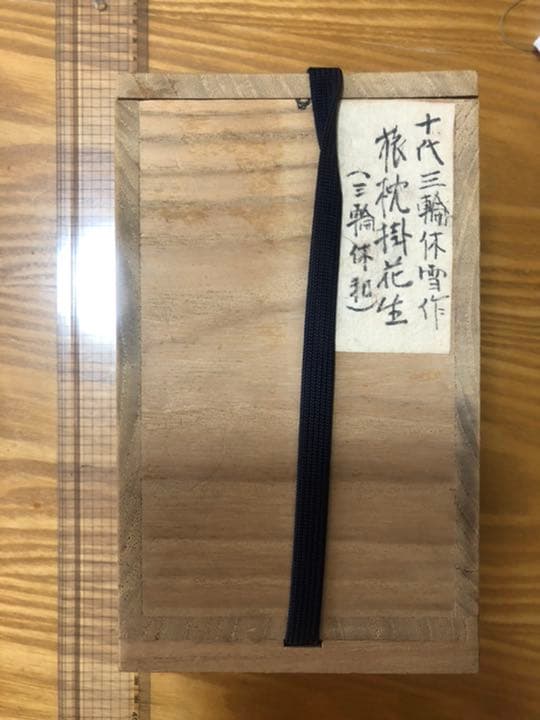 十代三輪休雪作
旅枕掛花生
(三輪休和)